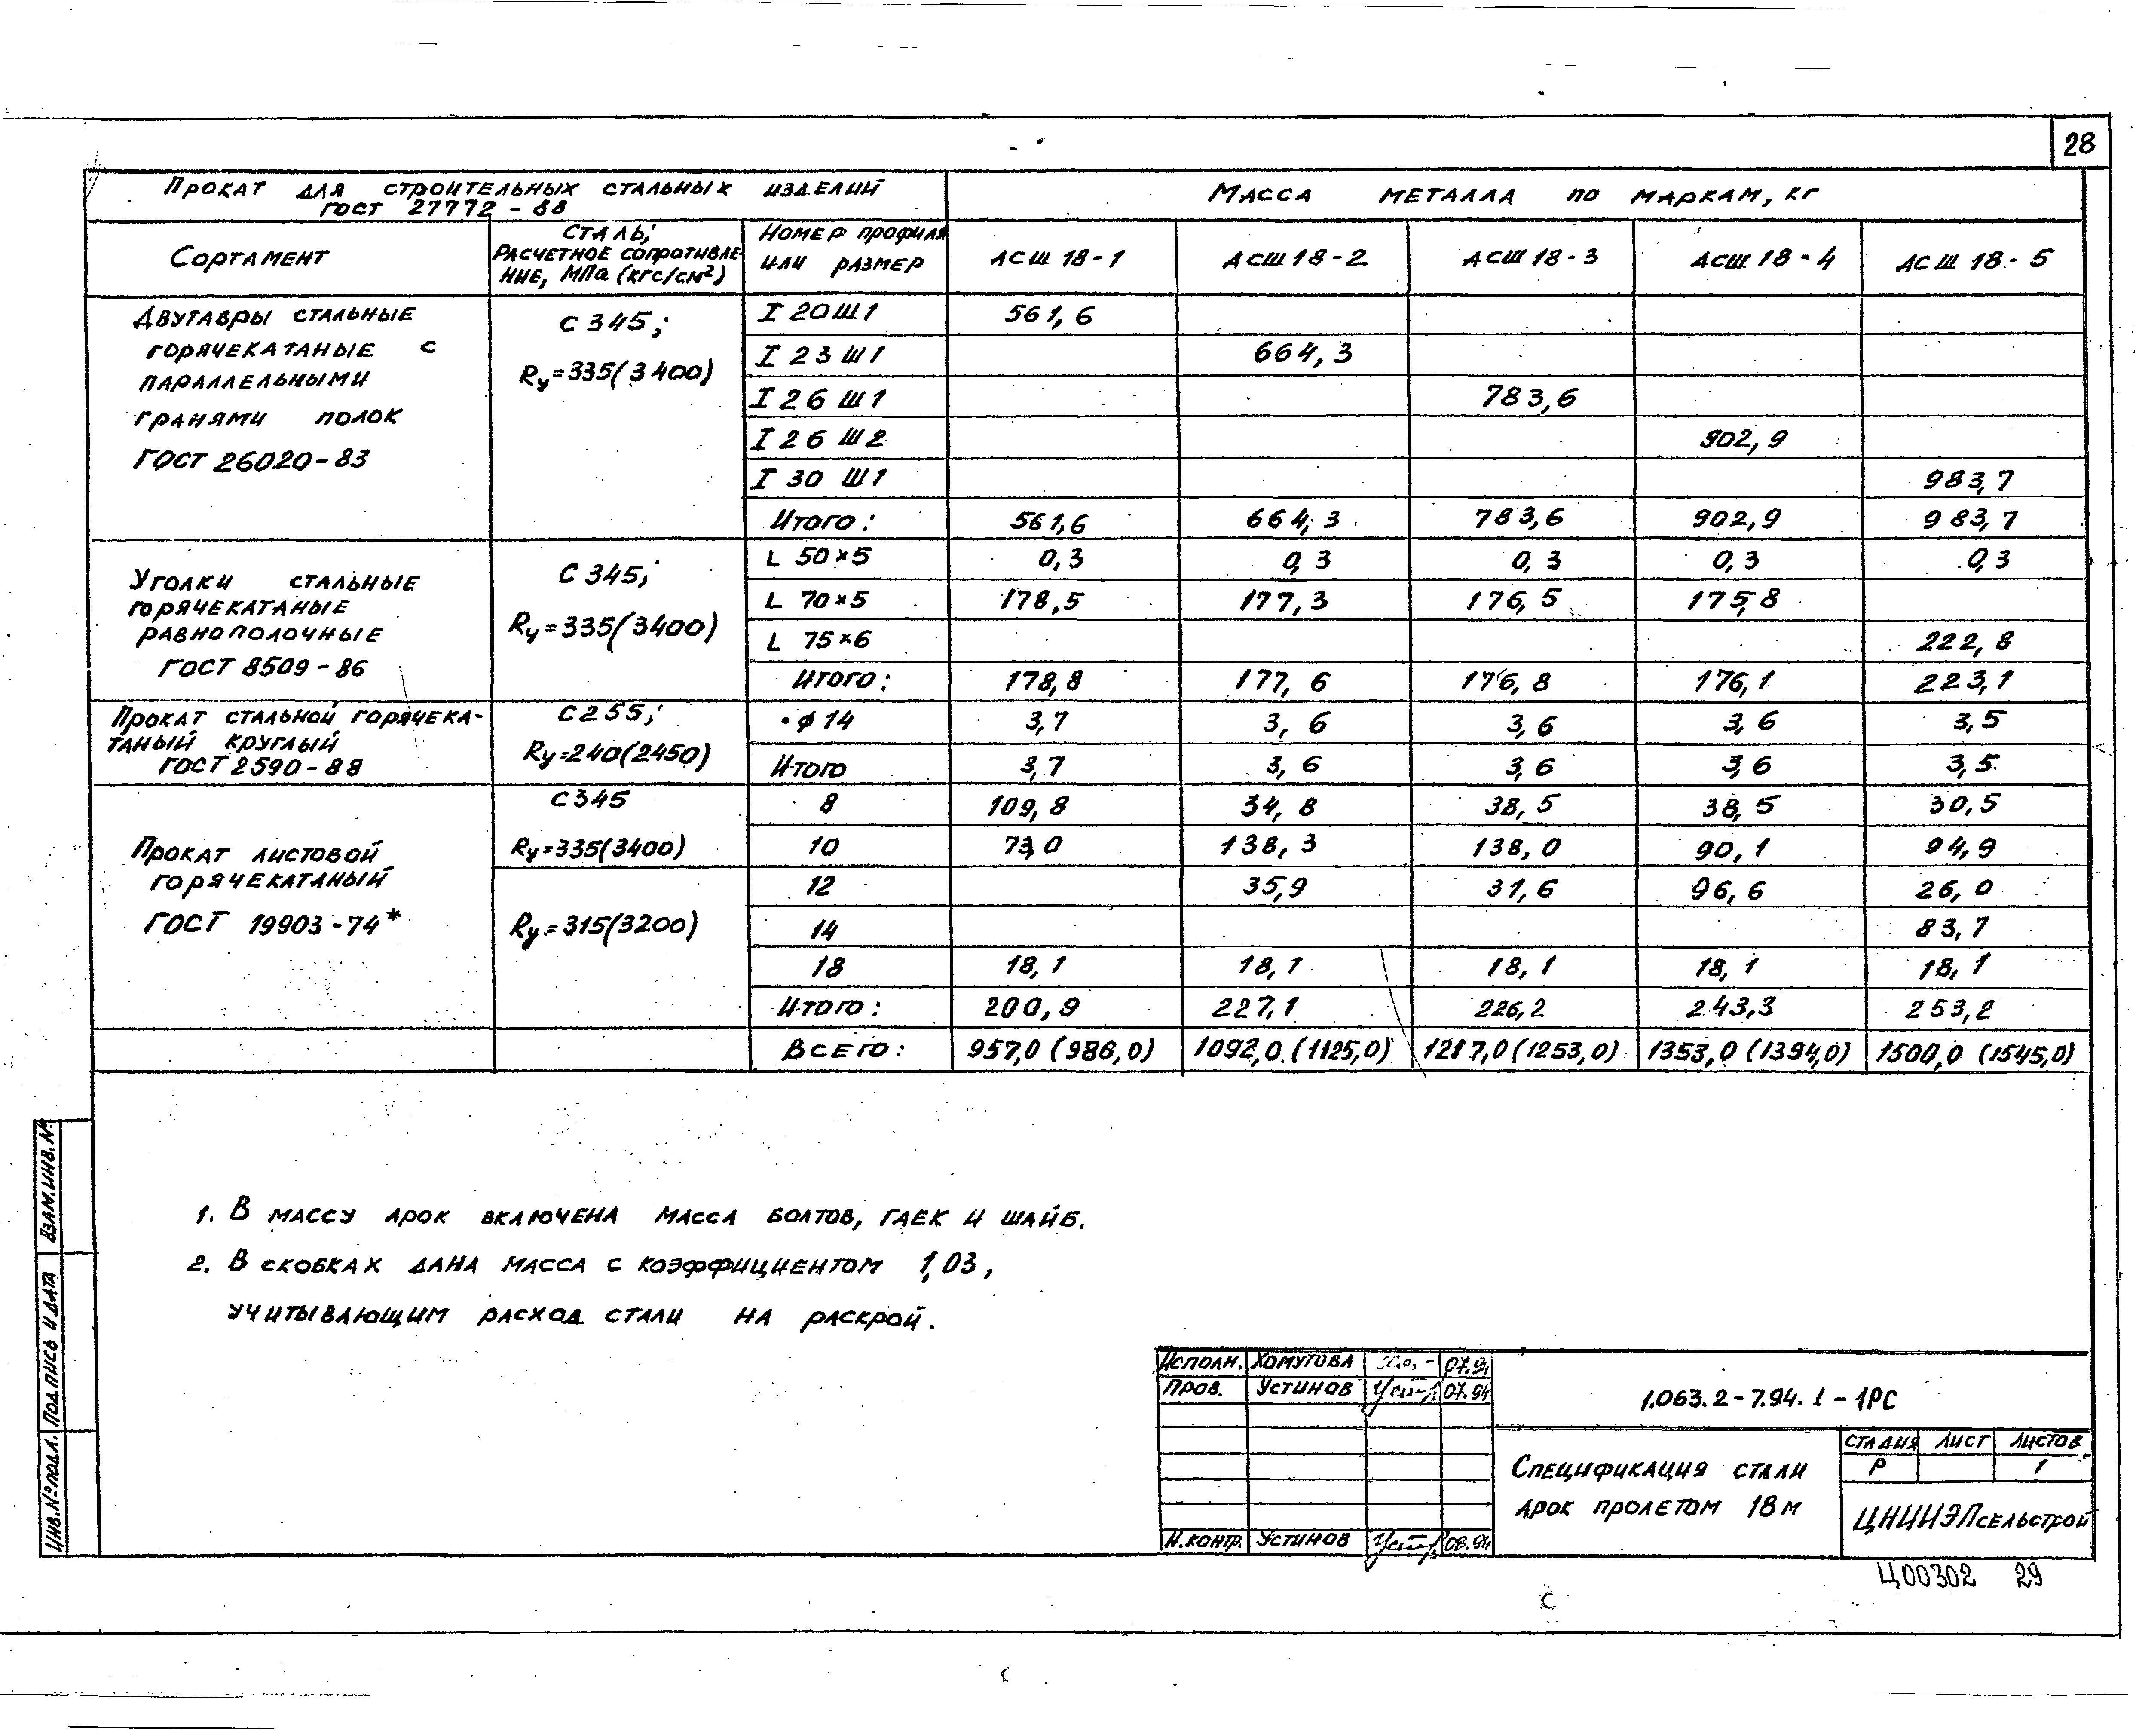 28
Прокат для строительных стальных изделий
ГОСТ 27772-88
Масса металла по маркам, кг
Сортамент
Сталь; расчетное сопротивление, МПа (кгс/см²)
Номер профиля или размер
АСШ 18-1 АСШ 18-2 АСШ 18-3 АСШ 18-4 АСШ 18-5
Двутавры стальные
горячекатаные с
параллельными
гранями полок
ГОСТ 26020-83
С345;
Rу=335(3400)
I 20Ш1 561,6
I 23Ш1 664,3
I 26Ш1 783,6
I 26Ш2 902,9
I 30Ш1 983,7
Итого: 561,6 664,3 783,6 902,9 983,7
Уголки стальные
горячекатаные
равнополочные
ГОСТ 8509-86
С345;
Rу=335(3400)
L 50×5 0,3 0,3 0,3 0,3 0,3
L 70×5 178,5 177,3 176,5 175,8
L 75×6 222,8
Итого: 178,8 177,6 176,8 176,1 223,1
Прокат стальной горячека-
таный круглый
ГОСТ 2590-88
С255;
Rу=240(2450)
ϕ14 3,7 3,6 3,6 3,6 3,5
Итого 3,7 3,6 3,6 3,6 3,5
Прокат листовой
горячекатаный
ГОСТ 19903-74*
С345
Rу=335(3400)
Rу=315(3200)
8 109,8 34,8 38,5 38,5 30,5
10 73,0 138,3 138,0 90,1 94,9
12 35,9 31,6 96,6 26,0
14 83,7
18 18,1 18,1 18,1 18,1 18,1
Итого: 200,9 227,1 226,2 243,3 253,2
Всего: 957,0 (986,0) 1092,0 (1125,0) 1217,0 (1253,0) 1353,0 (1394,0) 1500,0 (1545,0)
1. В массу арок включена масса болтов, гаек и шайб.
2. В скобках дана масса с коэффициентом 1,03,
учитывающим расход стали на раскрой.
Инв.№подл. Подпись и дата Взам.инв.№
Исполн. Хомутова 07.94
Пров. Устинов 07.94
Н.контр. Устинов 08.94
1.063.2-7.94.1-1РС
Спецификация стали
арок пролетом 18м
Стадия Лист Листов
Р 1
ЦНИИЭПсельстрой
Ц00302 29